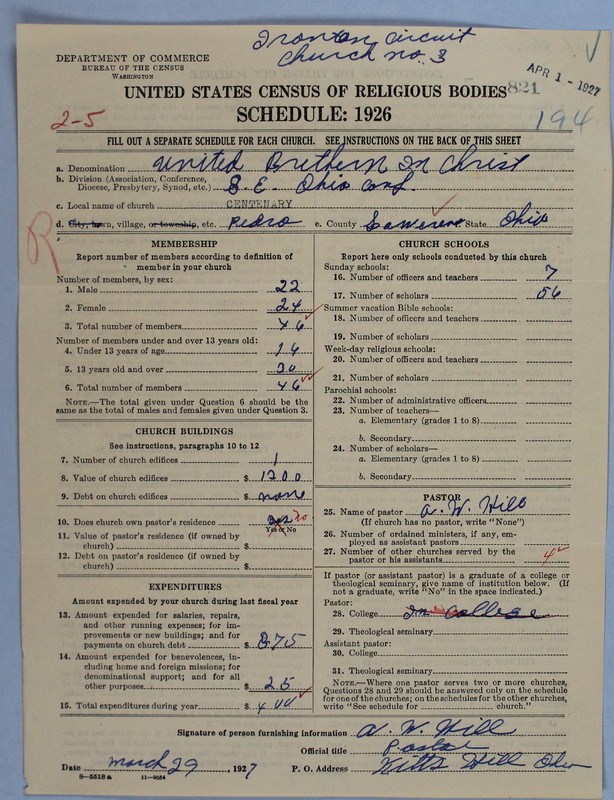 Ironton Circuit
Church no. 3
DEPARTMENT OF COMMERCE
BUREAU OF THE CENSUS
WASHINGTON
APR 1 - 1927
821
UNITED STATES CENSUS OF RELIGIOUS BODIES
194
2-5
SCHEDULE: 1926
FILL OUT A SEPARATE SCHEDULE FOR EACH CHURCH. SEE INSTRUCTIONS ON THE BACK OF THIS SHEET
a. Denomination United Brethern In Christ
b. Division (Association, Conference,
Diocese, Presbytery, Synod, etc.) S. E. Ohio conf.
c. Local name of church CENTENARY
d. City, town, village, or township, etc. Pedro e. County State Ohio
R
MEMBERSHIP
Report number of members according to definition of
member in your church
Number of members, by sex:
1. Male 22
2. Female 24
3. Total number of members 46
Number of members under and over 13 years old:
4. Under 13 years of age 16
5. 13 years old and over 30
6. Total number of members 46
NOTE.—The total given under Question 6 should be
same as the total of males and females given under Question 3.
CHURCH BUILDINGS
See instructions, paragraphs 10 to 12
7. Number of church edifices 1
8. Value of church edifices $ 1200
9. Debt on church edifices $ none
10. Does church own pastor's residence no
Yes or No
11. Value of pastor's residence (if owned by
church) $
12. Debt on pastor's residence (if owned by
church) $
EXPENDITURES
Amount expended by your church during last fiscal year
13. Amount expended for salaries, repairs,
and other running expenses; for im-
provements or new buildings; and for
payments on church debt $ 375
14. Amount expended for benevolences, in-
cluding home and foreign missions; for
denominational support; and for all
other purposes $ 25
15. Total expenditures during year $ 400
CHURCH SCHOOLS
Report here only schools conducted by this church
Sunday schools:
16. Number of officers and teachers 7
17. Number of scholars 56
Summer vacation Bible schools:
18. Number of officers and teachers
19. Number of scholars
Week-day religious schools:
20. Number of officers and teachers
21. Number of scholars
Parochial schools:
22. Number of administrative officers
23. Number of teachers—
a. Elementary (grades 1 to 8)
b. Secondary
24. Number of scholars—
a. Elementary (grades 1 to 8)
b. Secondary
PASTOR
25. Name of pastor A. W. Hill
(If church has no pastor, write "None")
26. Number of ordained ministers, if any, em-
ployed as assistant pastors
27. Number of other churches served by the
pastor or his assistants 4
If pastor (or assistant pastor) is a graduate of a college or
theological seminary, give name of institution below. (If
not a graduate, write "No" in the space indicated.)
Pastor:
28. College In College
29. Theological seminary
Assistant pastor:
30. College
31. Theological seminary
NOTE.—Where one pastor serves two or more churches,
Questions 28 and 29 should be answered only on the schedule
for one of the churches; on the schedules for the other churches,
write "See schedule for church."
Signature of person furnishing information A. W. Hill
Official title Pastor
Date March 29, 1927 P. O. Address Kitts Hill Ohio
8-5518 a 11-9054